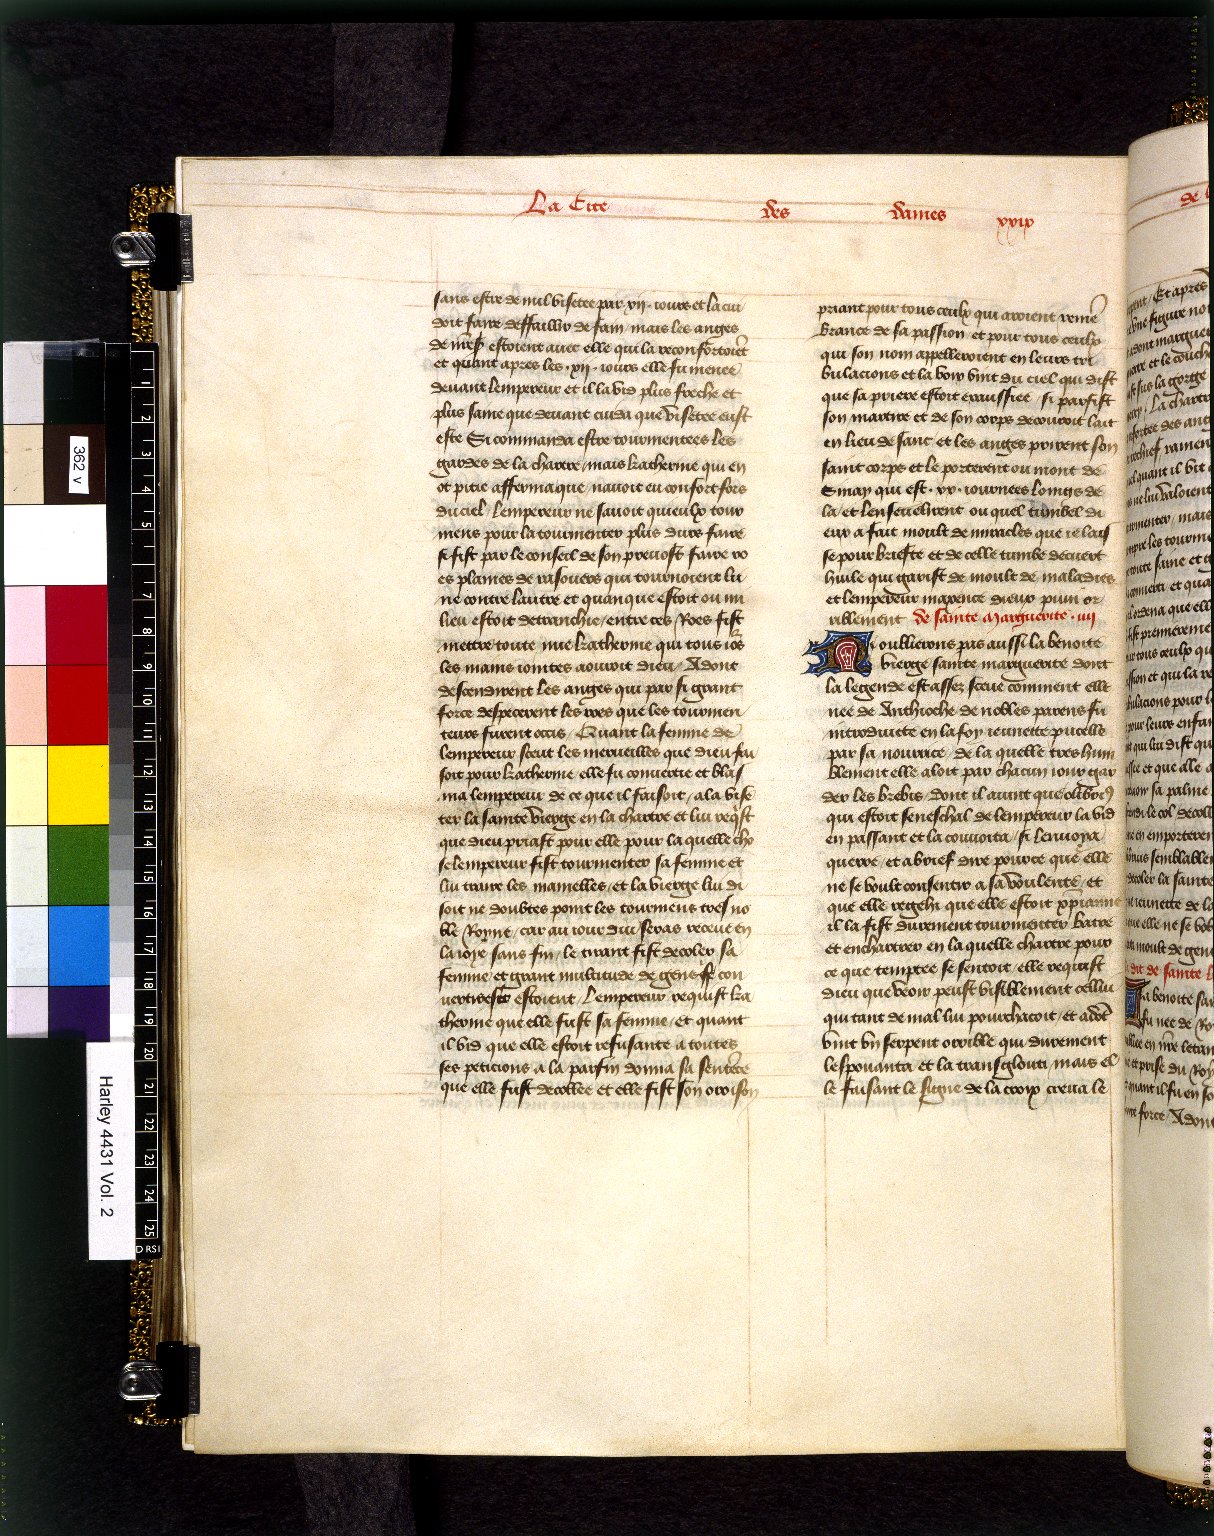 La Cite des dames xxix
sans estre de nul visetee par .xij. iours et la cui
doit faire deffaillir de fain / mais les anges
de nr̄e s̄ estoient auec elle qui la reconfortoiēt
et quant apres les .xij. iours elle fu menee
deuant lempereur et il la vid plus freche et
plus saine que deuant cuida que visetee eust
este Si commanda estre tourmentees les
gardes de la chartre / mais katherine qui en
ot pitie afferma que nauoit eu confort fors
du ciel / lempereur ne sauoit quieulx tour
mens pour la tourmenter plus durs faire
se fist par le conseil de son preuost faire ro
es plaines de rasouers qui tournoient lu
ne contre lautre et quanque estoit ou mi
lieu estoit detranchie / entre ces Roes fist
mettre toute nue katherine qui tous iōs
les mains iointes aouroit dieu / Adont
descendirent les anges qui par si grant
force despecerent les roes que les tourmen
teurs furent occis / Quant la femme de
lempereur sceut les merueilles que dieu fai
soit pour katherine / elle fu conuertie et blas
ma lempereur de ce que il faisoit / ala vise
ter la sainte vierge en la chartre et lui req̄st
que dieu priast pour elle pour la quelle cho
se lempereur fist tourmenter sa femme et
lui traire les mamelles / et la vierge lui di
soit ne doubtes point les tourmens tres no
ble Royne / car au iour dui seras receue en
la ioye sans fin / le tirant fist decoler sa
femme et grant multitude de gens qui con
uertis estoient / Lempereur requist ka
therine que elle fust sa femme / et quant
il vid que elle estoit refusante a toutes
ses peticions a la parfin donna sa sentēce
que elle fust decollee et elle fist son oroison
priant pour tous ceulx qui aroient remē
brance de sa passion et pour tous ceulx
qui son nom appelleroient en leurs tri
bulacions et la voix vint du ciel qui dist
que sa priere estoit exaussiee / si parfist
son martire et de son corps decouroit lait
en lieu de sanc et les anges prirent son
saint corps et le porterent ou mont de
Sinay qui est .xx. iournees loings de
la / et lenseuelirent ou quel tumbel di
eux a fait moult de miracles que ie lais
se pour briefte et de celle tumbe decuert
huile qui garist de moult de maladies
et lempereur maxence dieux puni or
riblement de sainte Marguerite .iij
N oublierons pas aussi la benoite
vierge sainte marguerite dont
la legende est assez sceue comment elle
nee de Anthioche de nobles parens fu
introduicte en la foy ieunette pucelle
par sa nourrice / de la quelle tres hum
blement elle aloit par chacun iour gar
der les brebis / dont il auint que olibriꝰ
qui estoit seneschal de lempereur la vid
en passant et la couuoita / si lenuoya
querre / et a brief dire pource que elle
ne se voult consentir a sa voulente / et
que elle regehi que elle estoit xp̄ianne
il la fist durement tourmenter batre
et enchartrer en la quelle chartre pour
ce que temptee se sentoit / elle requist
dieu que veoir peust visiblement cellui
qui tant de mal lui pourchacoit / et adōt
vint vn serpent orrible qui durement
lespouanta et la transglouti / mais el
le faisant le signe de la croix creua le
362 v
Harley 4431 Vol. 2